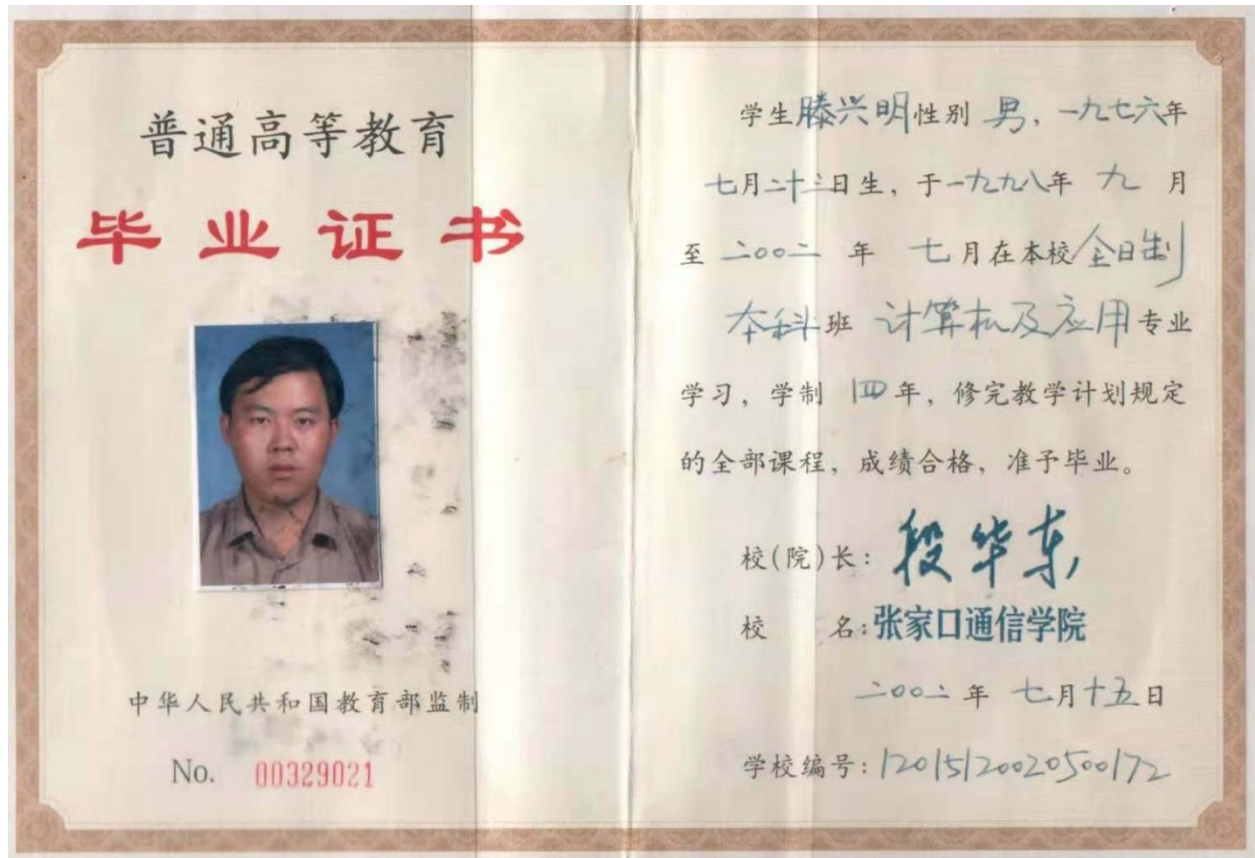 普通高等教育
毕业证书
中华人民共和国教育部监制
No. 00329021
学生滕兴明性别 男，一九七六年
七月二十三日生，于一九九八年 九 月
至 二〇〇二 年 七月在本校全日制
本科班 计算机及应用专业
学习，学制 四年，修完教学计划规定
的全部课程，成绩合格，准予毕业。
校(院)长：段华东
校 名：张家口通信学院
二〇〇二年 七月十五日
学校编号：12015120020500172